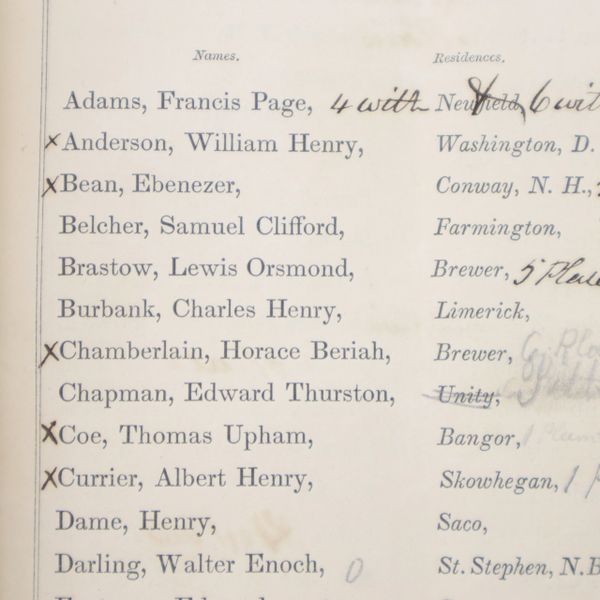 Names. Residences.
Adams, Francis Page, 4 with Newfield, 6 wit
x Anderson, William Henry, Washington, D.
x Bean, Ebenezer, Conway, N. H.,
Belcher, Samuel Clifford, Farmington,
Brastow, Lewis Orsmond, Brewer, 5 Plac
Burbank, Charles Henry, Limerick,
x Chamberlain, Horace Beriah, Brewer,
Chapman, Edward Thurston, Unity,
x Coe, Thomas Upham, Bangor, 1
x Currier, Albert Henry, Skowhegan, 1
Dame, Henry, Saco,
Darling, Walter Enoch, 0 St. Stephen, N.B